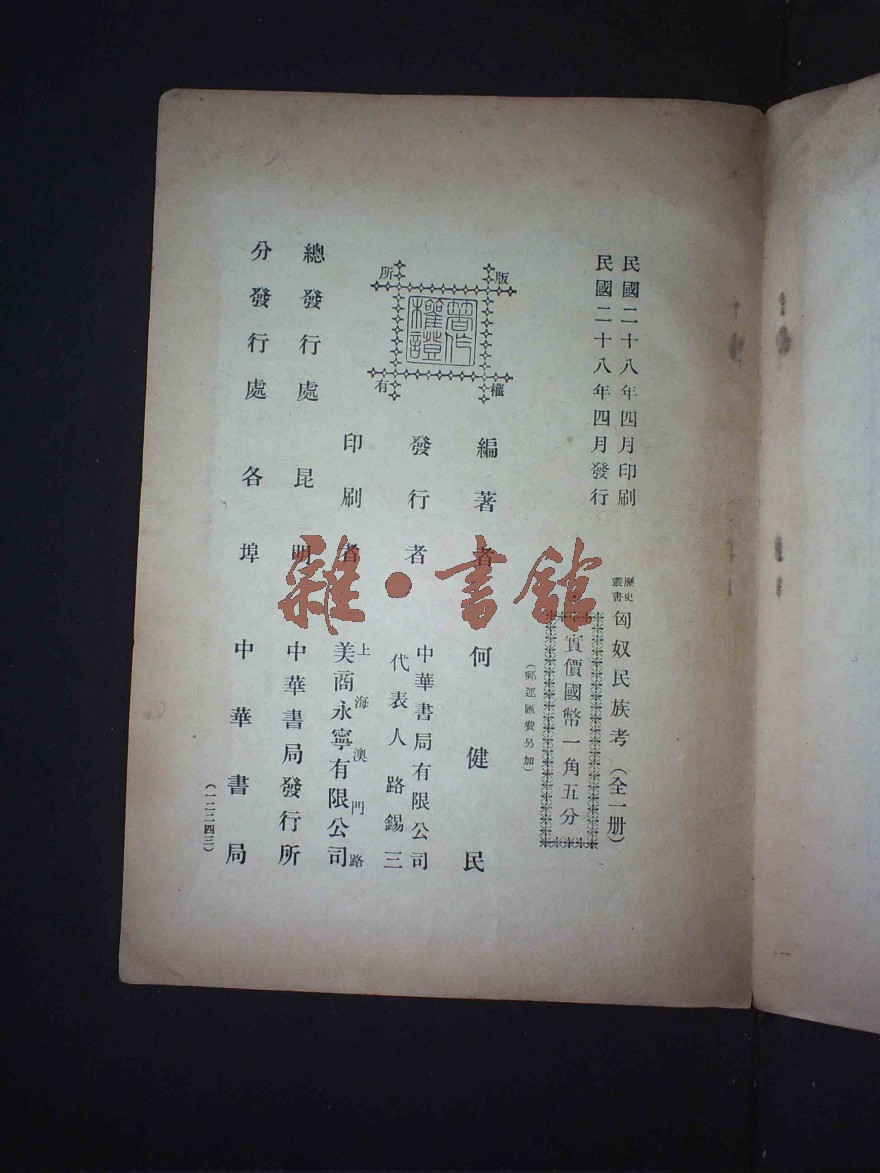 民國二十八年四月印刷
民國二十八年四月發行
歷史
叢書
匈奴民族考（全一册）
實價國幣一角五分
（郵運匯費另加）
版權所有
著作
權證
編著者 何健民
發行者 中華書局有限公司
代表人路錫三
印刷者 上海澳門路
美商永寧有限公司
總發行處 昆明 中華書局發行所
分發行處 各埠 中華書局
（一二二四三）
雜·書館